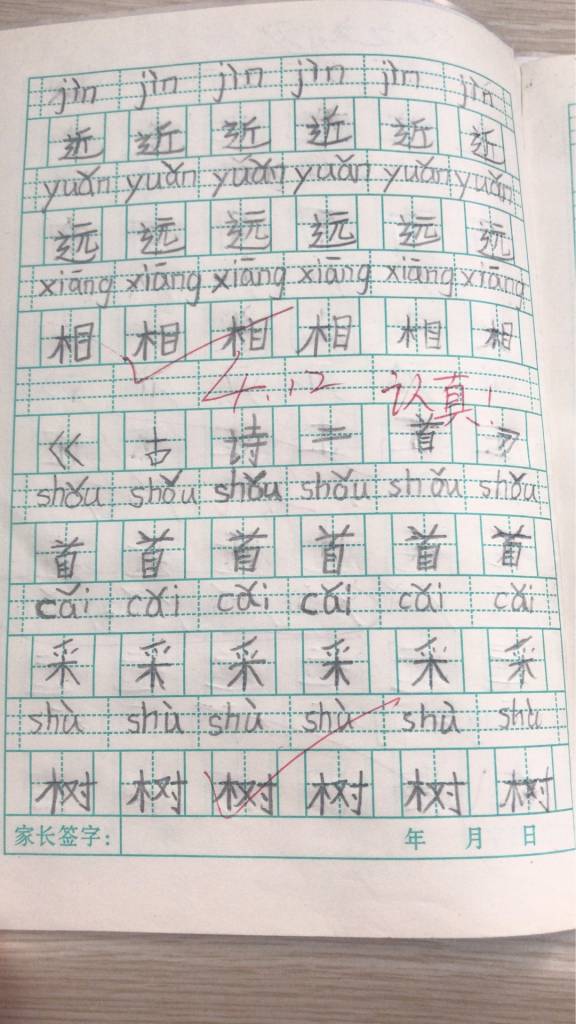 jìn jìn jìn jìn jìn jìn
近 近 近 近 近 近
yuǎn yuǎn yuǎn yuǎn yuǎn yuǎn
远 远 远 远 远 远
xiāng xiāng xiāng xiāng xiāng xiāng
相 相 相 相 相 相
4.12 认真!
《 古 诗 二 首 》
shǒu shǒu shǒu shǒu shǒu shǒu
首 首 首 首 首 首
cǎi cǎi cǎi cǎi cǎi cǎi
采 采 采 采 采 采
shù shù shù shù shù shù
树 树 树 树 树 树
家长签字: 年 月 日